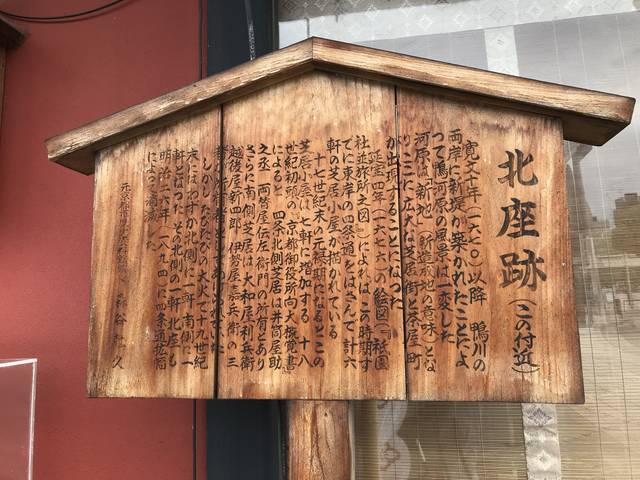 北座跡（この付近）
寛文十年（一六七〇）以降 鴨川の
両岸に新堤が築かれたことによ
って鴨河原の風景は一変した
河原は「新地」（新造成地の意味）とな
り ここに広大な芝居街と茶屋町
が出現することとなった
延宝四年（一六七六） 絵図（『祇園
社並旅所之図』）によれば この時期す
でに東岸の四条通をはさんで、計六
軒の芝居小屋が描かれている
十七世紀末の元禄期になるとこの
芝居小屋は七軒に増加する 十八
世紀初頭の『京都御役所向大概覚書』
によると 四条北側芝居は井筒屋助
之丞 両替屋伝左衛門の所有とあり
さらに南側芝居は大和屋利兵衛
越後屋新四郎 伊勢屋嘉兵衛の三
しかし たびたびの大火で十九世紀
末には わずか北側に一軒 南側に一
軒となった その北側の一軒 北座も
明治二六年（一八九四）に四条通拡幅
によって廃